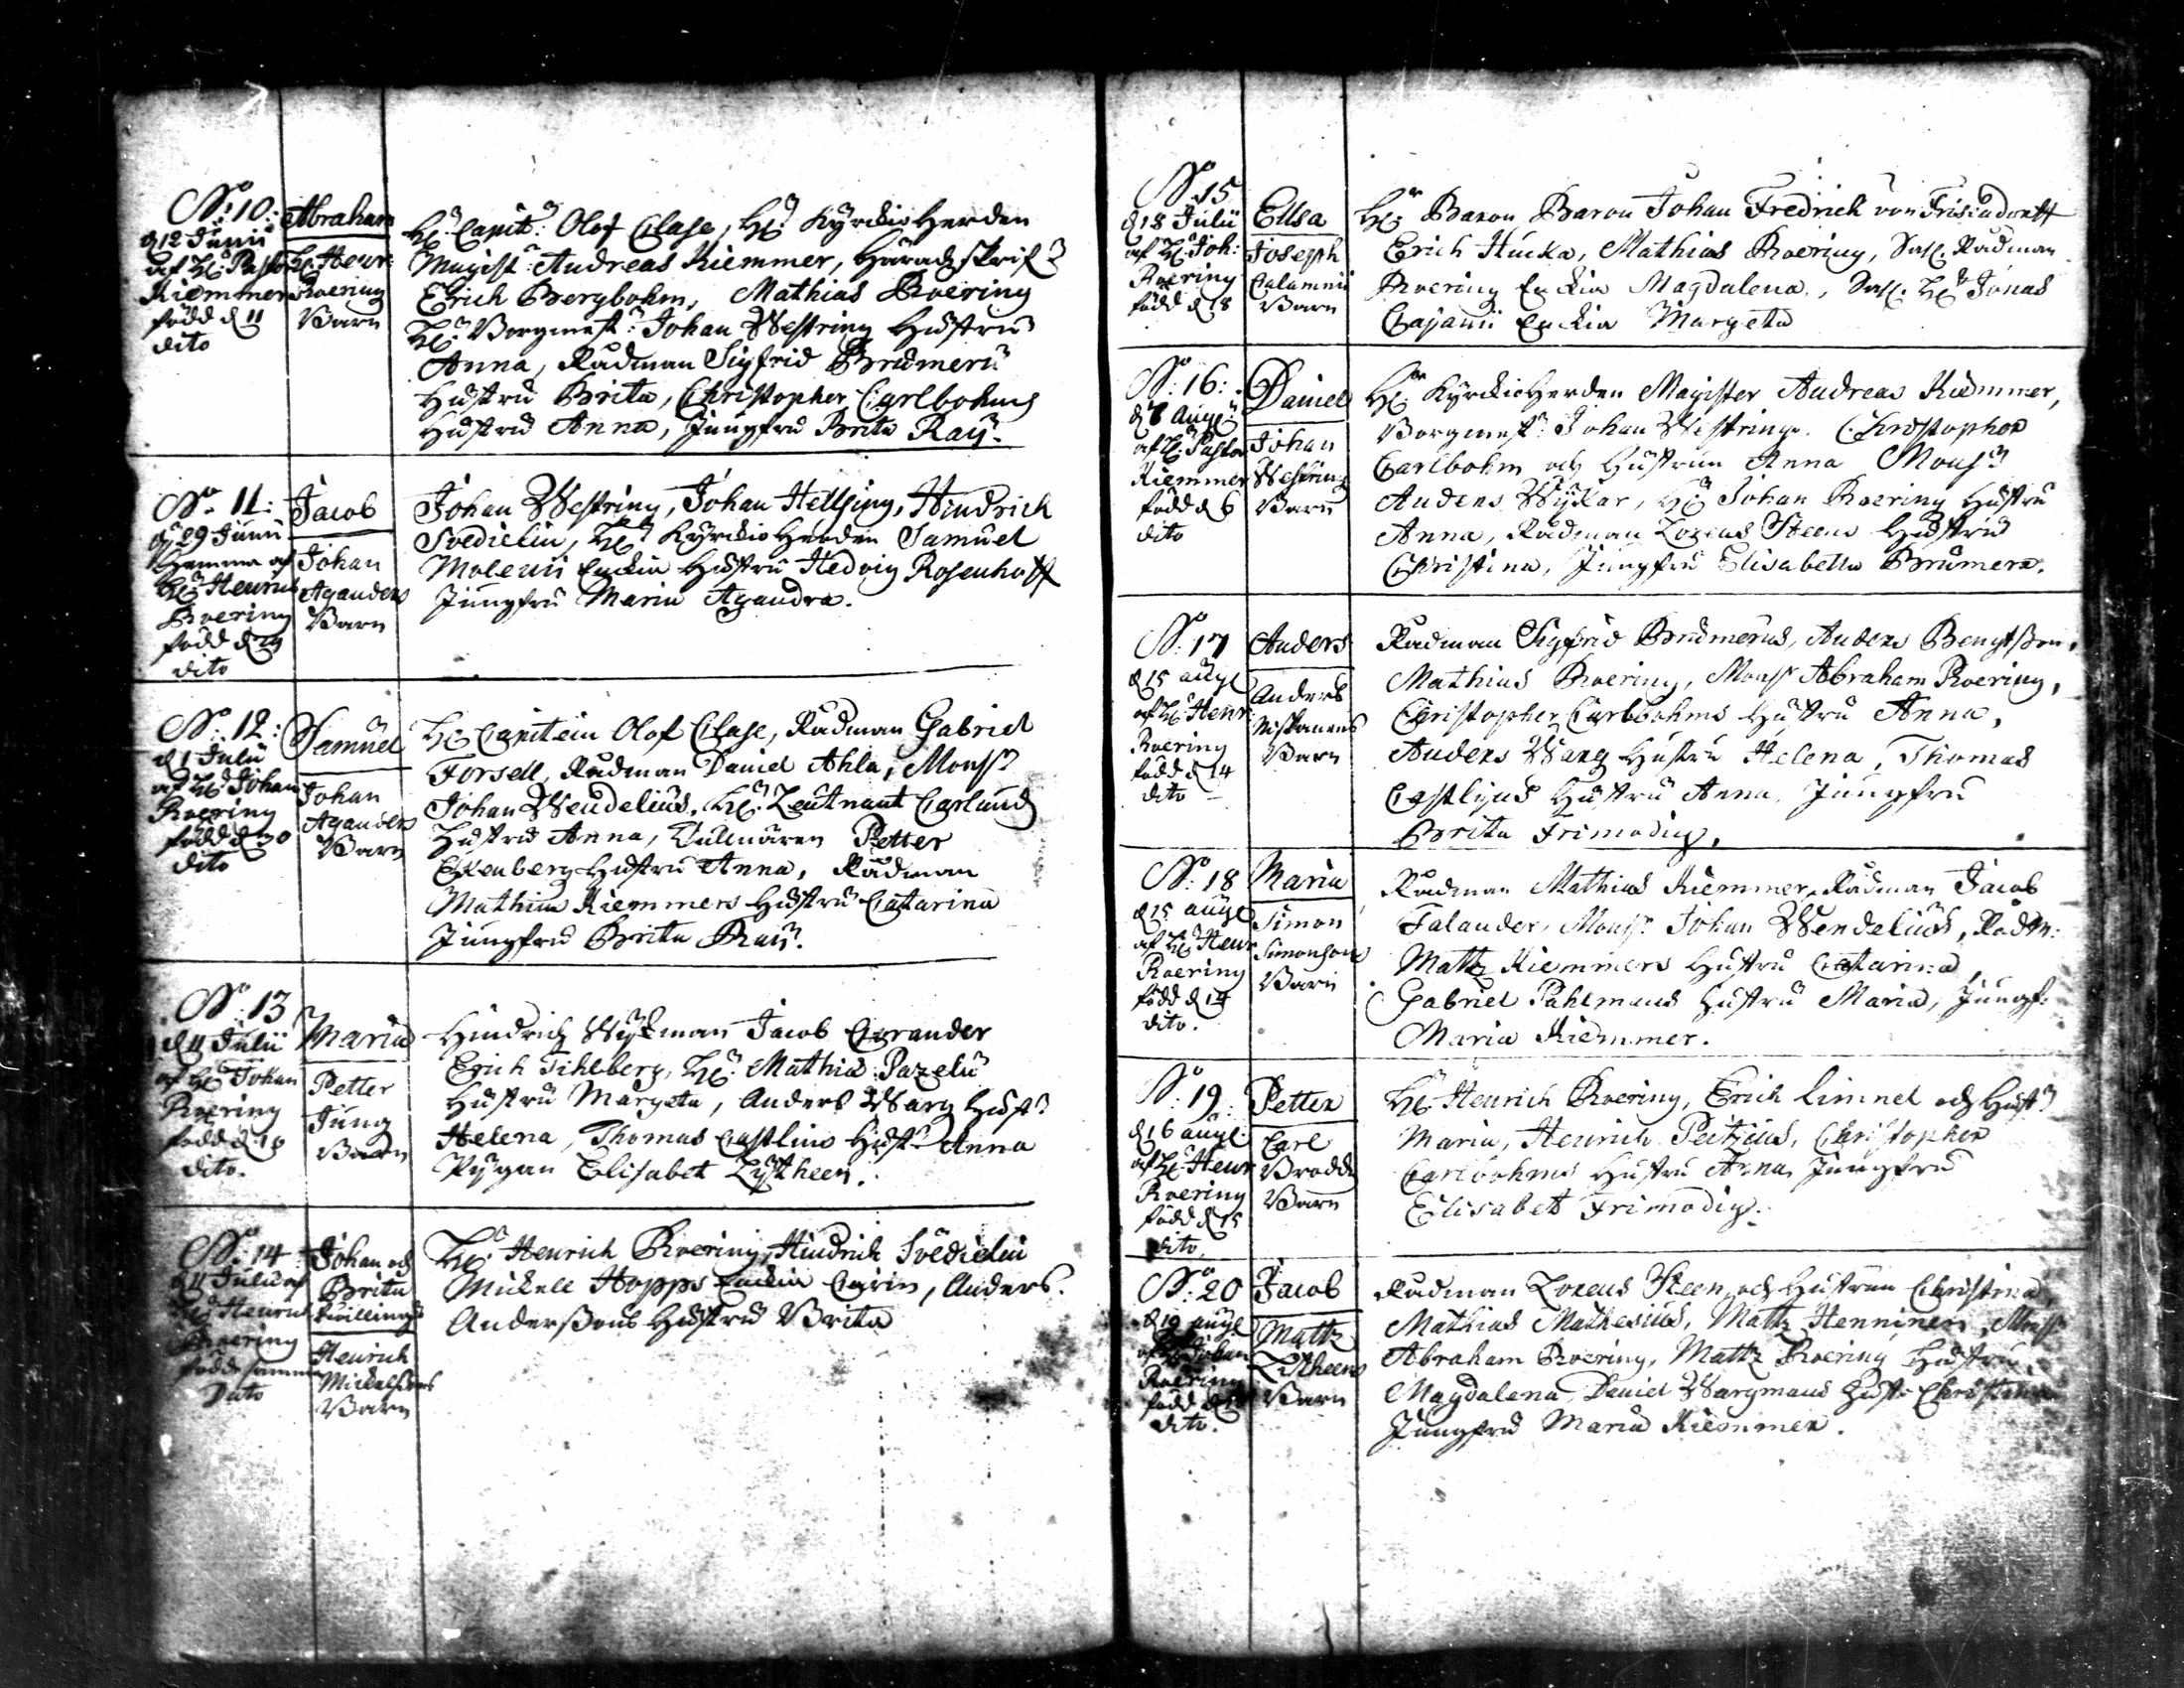 No: 10:
d 12 Junii
af H: Pastor
Kiemmer
född d 11
dito
Abraham
H: Henr:
Roering
Barn
Hr: Capit: Olof Clase, Hr: Kyrckio Herden
Magist: Andreas Kiemmer, Häradzskrif:
Erich Bergbohm, Mathias Roering
Hr: Borgmest: Johan Westring Hustru
Anna, Rådman Sigfrid Brumeri
Hustru Brita, Christopher Carlbohms
Hustru Anna, Jungfru Brita Raij.
No. 11:
d 29 Junii
Hemma af
Hr Henric
Roering
född d 29
dito
Jacob
Johan
Aganders
Barn
Johan Westring, Johan Hellsing, Hindrich
Svedielin, Hr Kyrckio Herden Samuel
Molerii Enckia Hustru Hedvig Rosenhoff
Jungfru Maria Agandra.
No: 12:
d 1 Julii
af Hr Johan
Roering
född d 30
dito
Samuel
Johan
Aganders
Barn
Hr Capitein Olof Clase, Rådman Gabriel
Forsell, Rådman Daniel Ahla, Monsr
Johan Wendelius, Hr: Leutnant Carlund
Hustru Anna, Tullnären Petter
Ekenberg Hustru Anna, Rådman
Mathias Kiemmers Hustru Catarina
Jungfru Brita Raij.
No: 13
d 11 Julii
af Hr Johan
Roering
född d 10
dito.
Maria
Petter
Jung
Barn
Hindrich Wijkman Jacob Corander
Erich Tihlberg, Hr: Mathia Pazelii
Hustru Margeta, Anders Warg Hust:
Helena, Thomas Castlius Hust: Anna
Pygan Elisabet Lystheen.
No: 14
d 11 Julii af
Hr Henric
Roering
född samma
Dato
Johan och
Brita
twillingar
Henrich
Mickelsons
Barn
Hr: Henrich Roering, Hindrich Svedielin
Mickell Hopps Enckia Carin, Anders
Anderssons Hustru Brita
No 15
d 18 Julii
af H: Joh:
Roering
född d 18
Ellsa
Joseph
Calamnii
Barn
Hr: Baron Baron Johan Fredrich von Frisendorff
Erich Hucka, Mathias Roering, Sal. Rådman
Roering Enckia Magdalena, Sal. Hr Jonas
Cajanii Enckia Margeta
No: 16:
d 8 Aug:
af H: Pastor
Kiemmer
född d 6
dito
Daniel
Johan
Westrings
Barn
Hr: KyrckioHerden Magister Andreas Kiemmer,
Borgmest: Johan Westring. Christopher
Carlbohm och Hustrun Anna Monsr
Anders Wijkar, Hr Johan Roering Hustru
Anna, Rådman Lorens Steen Hustru
Christina, Jungfru Elisabetta Brumera.
No: 17
d 15 aug:
af H: Henr:
Roering
född d 14
dito
Anders
Anders
Niskanens
Barn
Rådman Sigfrid Brumerus, Anders Bengtsson,
Mathias Roering, Monsr Abraham Roering,
Christopher Carlbohms Hustru Anna,
Anders Warg Hustru Helena, Thomas
Castlius Hustru Anna, Jungfru
Brita Frimodig.
No: 18
d 15 aug:
af Hr Henr
Roering
född d 14
dito.
Maria
Simon
Simonsons
Barn
Rådman Mathias Kiemmer, Rådman Jacob
Falander, Monsr Johan Wendelius, Rådm:
Matts Kiemmers Hustru Catarina
Gabriel Pahlmans Hustru Maria, Jungf:
Maria Kiemmer.
No: 19:
d 16 aug:
af H: Henr
Roering
född d 15
dito,
Petter
Carl
Brodds
Barn
Hr Henrich Roering, Erich Limnel och Hustr
Maria, Henrich Peitzius, Christopher
Carlbohms Hustru Anna, Jungfru
Elisabet Frimodig.
No: 20
d 19 aug:
af H: Johan
Roering
född d
dito.
Jacob
Matts
Litheens
Barn
Rådman Lorens Steen och Hustrun Christina,
Mathias Mathesius, Matts Henninen, Monsr
Abraham Roering, Matts Roering Hustru
Magdalena, Daniel Wargmans Hust: Christina
Jungfru Maria Kiemmer.